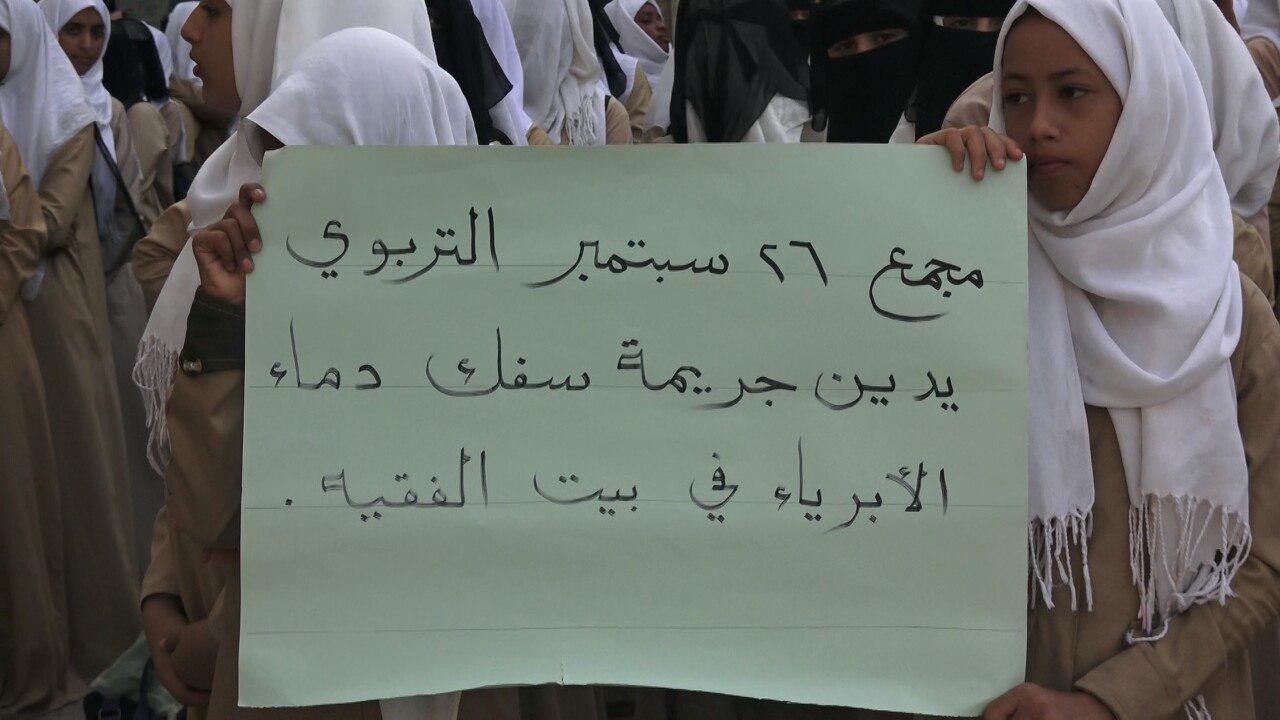 مجمع ٢٦ سبتمبر التربوي
يدين جريمة سفك دماء
الأبرياء في بيت الفقيه .